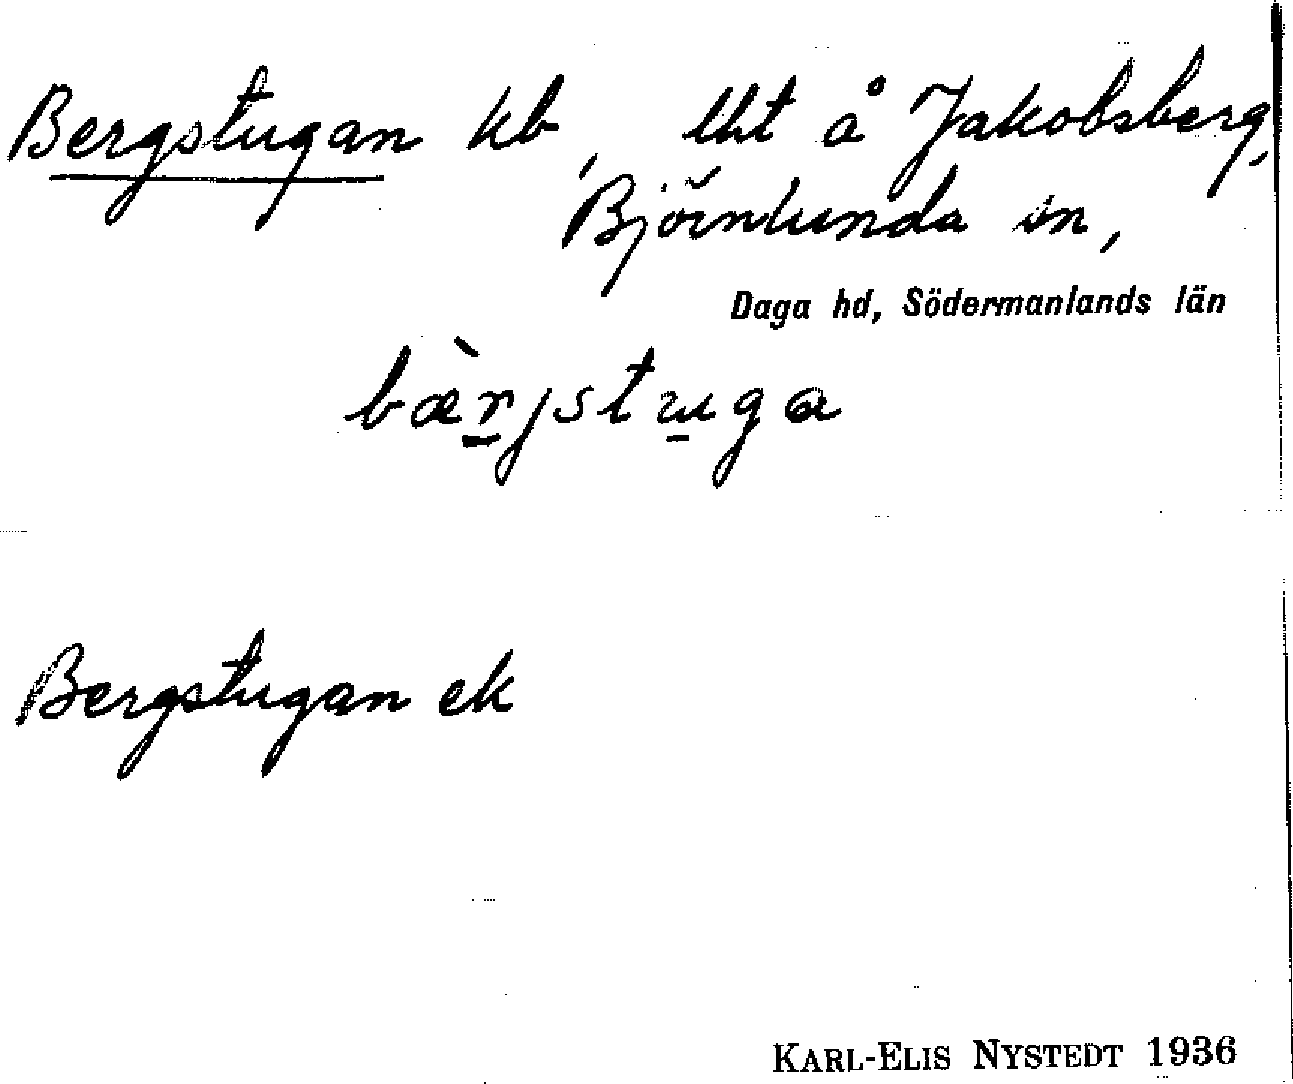 Bergstugan kb, lht å Jakobsberg,
Björnlunda sn,
Daga hd, Södermanlands län
bæ̀r̠jstu̠ga
Bergstugan ek
KARL-ELIS NYSTEDT 1936